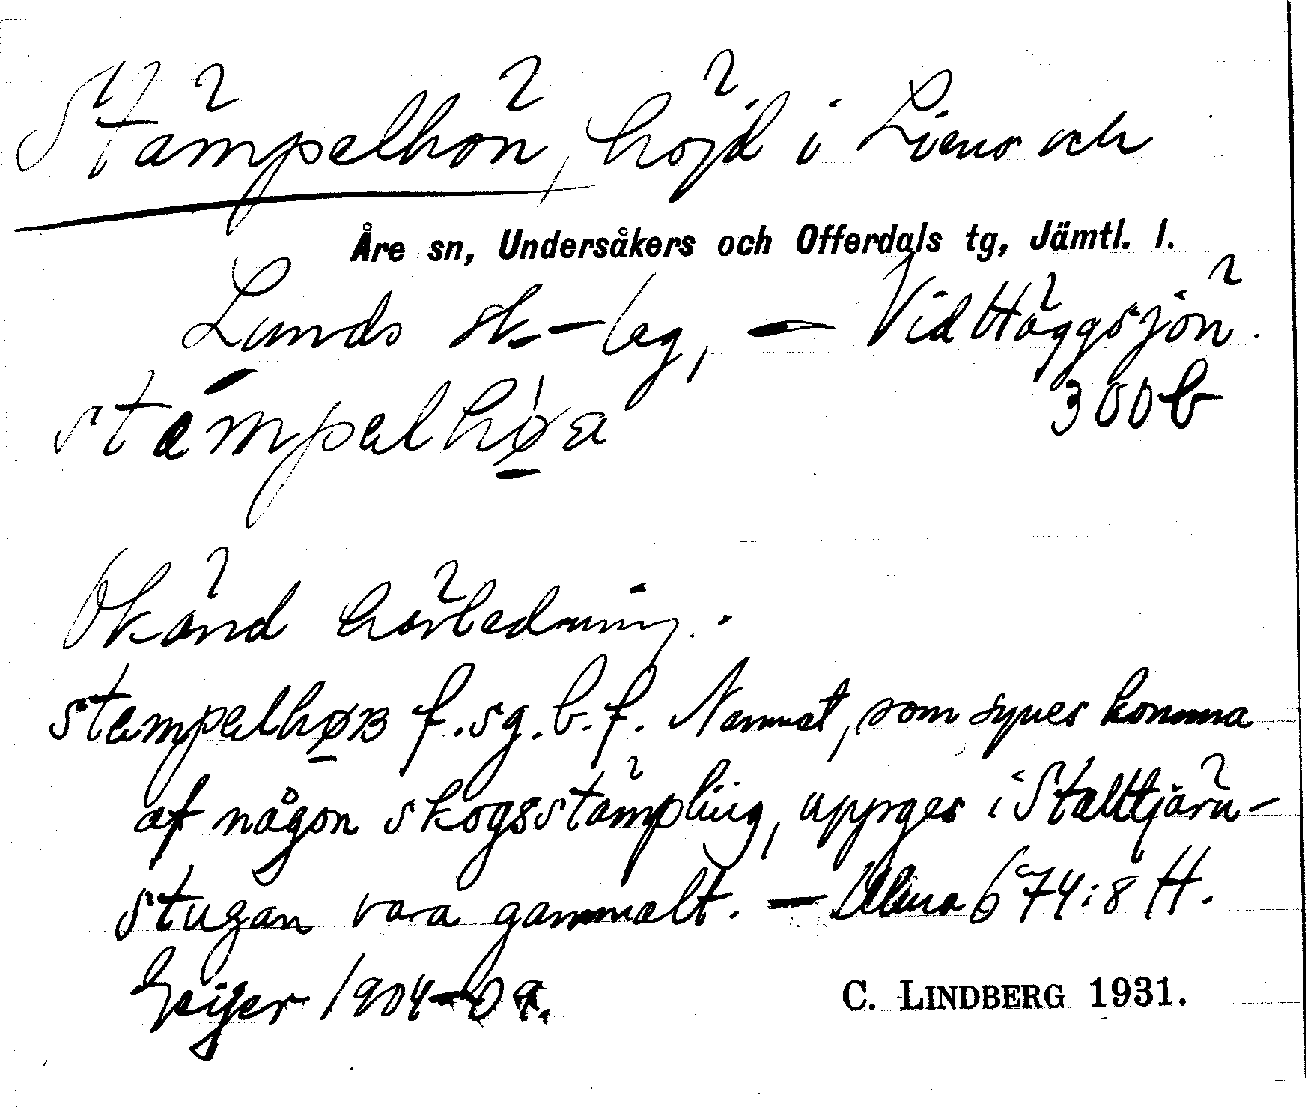 Stämpelhön, höjd i Liens och
Åre sn, Undersåkers och Offerdals tg, Jämtl. l.
Lunds sk-lag, — Vid Häggsjön.
stæmpelhøa 300b
Okänd härledning.
stæmpelhøn f. sg. b. f. Namnet, som synes komma
af någon skogsstämpling, uppges i Stalltjärn-
stugan vara gammalt. — Ulma 674:8 H.
Geijer 1904-09.
C. LINDBERG 1931.